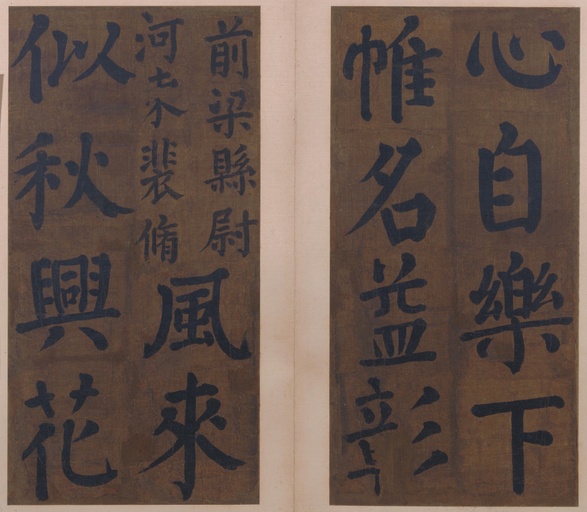 心自樂下
帷名益彰
前梁縣尉
河 裴脩
風來
似秋興花